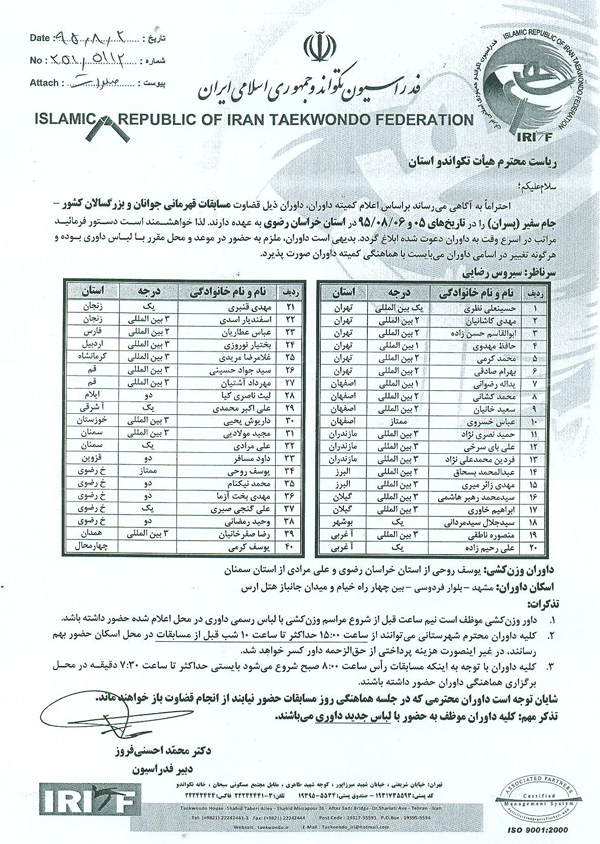 تاریخ : ۹۵/۸/۲ Date :
شماره : ۲۵۱/۵۱۱۲ No :
پیوست : Attach :
فدراسیون تکواندو جمهوری اسلامی ایران
ISLAMIC REPUBLIC OF IRAN TAEKWONDO FEDERATION
ISLAMIC REPUBLIC OF IRAN TAEKWONDO FEDERATION
IRITF
ریاست محترم هیأت تکواندو استان
سلام علیکم؛
احتراماً به آگاهی می‌رساند براساس اعلام کمیته داوران، داوران ذیل قضاوت مسابقات قهرمانی جوانان و بزرگسالان کشور –
جام سفیر (پسران) را در تاریخ‌های ۰۵ و ۹۵/۰۸/۰۶ در استان خراسان رضوی به عهده دارند. لذا خواهشمند است دستور فرمائید
مراتب در اسرع وقت به داوران دعوت شده ابلاغ گردد. بدیهی است داوران، ملزم به حضور در موعد و محل مقرر با لباس داوری بوده و
هرگونه تغییر در اسامی داوران می‌بایست با هماهنگی کمیته داوران صورت پذیرد.
سرناظر: سیروس رضایی
ردیف نام و نام خانوادگی درجه استان
۱ حسینعلی نظری یک بین المللی تهران
۲ مهدی کاشانیان ۲ بین المللی تهران
۳ ابوالقاسم حسن زاده ۲ بین المللی تهران
۴ حافظ مهدوی ۱ بین المللی تهران
۵ محمد کرمی ۲ بین المللی تهران
۶ بهرام صادقی ۲ بین المللی تهران
۷ یداله رضوانی ۱ بین المللی اصفهان
۸ محمد کشانی ۲ بین المللی اصفهان
۹ سعید خانیان ۲ بین المللی اصفهان
۱۰ عباس خسروی ممتاز اصفهان
۱۱ حمید نصری نژاد ۳ بین المللی مازندران
۱۲ علی بای سرخی ۳ بین المللی مازندران
۱۳ فردین محمدعلی نژاد ۳ بین المللی مازندران
۱۴ عبدالمحمد بسحاق ۲ بین المللی البرز
۱۵ مهدی زائر میری ۳ بین المللی البرز
۱۶ سیدمحمد رهبر هاشمی ۳ بین المللی گیلان
۱۷ ابراهیم خاوری ۳ بین المللی گیلان
۱۸ سیدجلال سیدمردانی یک بوشهر
۱۹ منصوره ناطقی ۳ بین المللی آ غربی
۲۰ علی رحیم زاده یک آ غربی
ردیف نام و نام خانوادگی درجه استان
۲۱ مهدی قنبری یک زنجان
۲۲ اسفندیار اسدی ۳ بین المللی زنجان
۲۳ عباس عطاریان ۲ بین المللی فارس
۲۴ بختیار نوروزی ۳ بین المللی اردبیل
۲۵ غلامرضا مریدی ۳ بین المللی کرمانشاه
۲۶ سید جواد حسینی ۳ بین المللی قم
۲۷ مهرداد آشتیان ۳ بین المللی قم
۲۸ لیث ناصری کیا دو ایلام
۲۹ علی اکبر محمدی یک آ شرقی
۳۰ داریوش یحیی ۳ بین المللی خوزستان
۳۱ مجید مولادبی ۳ بین المللی سمنان
۳۲ علی مرادی یک سمنان
۳۳ داود مسافر دو قزوین
۳۴ یوسف روحی ممتاز خ رضوی
۳۵ محمد نیکنام دو خ رضوی
۳۶ مهدی بخت آزما دو خ رضوی
۳۷ علی گنجی صبری یک خ رضوی
۳۸ وحید رمضانی دو خ رضوی
۳۹ رضا صفرخانیان ۳ بین المللی همدان
۴۰ یوسف کرمی چهارمحال
داوران وزن‌کشی: یوسف روحی از استان خراسان رضوی و علی مرادی از استان سمنان
اسکان داوران: مشهد – بلوار فردوسی – بین چهار راه خیام و میدان جانباز هتل ارس
تذکرات:
۱. داور وزن‌کشی موظف است نیم ساعت قبل از شروع مراسم وزن‌کشی با لباس رسمی داوری در محل اعلام شده حضور داشته باشد.
۲. کلیه داوران محترم شهرستانی می‌توانند از ساعت ۱۵:۰۰ حداکثر تا ساعت ۱۰ شب قبل از مسابقات در محل اسکان حضور بهم
رسانند، در غیر اینصورت هزینه پرداختی از حق‌الزحمه داور کسر خواهد شد.
۳. کلیه داوران با توجه به اینکه مسابقات رأس ساعت ۸:۰۰ صبح شروع می‌شود بایستی حداکثر تا ساعت ۷:۳۰ دقیقه در محل
برگزاری هماهنگی داوران حضور داشته باشند.
شایان توجه است داوران محترمی که در جلسه هماهنگی روز مسابقات حضور نیابند از انجام قضاوت باز خواهند ماند.
تذکر مهم: کلیه داوران موظف به حضور با لباس جدید داوری می‌باشند.
دکتر محمد احسنی‌فروز
دبیر فدراسیون
IRITF
تهران: خیابان شریعتی ، خیابان شهید میرزاپور ، کوچه شهید طاهری ، مقابل مجتمع مسکونی سبحان ، خانه تکواندو
کد پستی: ۱۹۳۱۷۳۵۵۹۳ - صندوق پستی: ۵۵۳۴-۱۹۳۹۵ تلفن: ۳-۲۲۲۴۲۴۴۱ فاکس: ۲۲۲۴۲۴۴۴
Taekwondo House -Shahid Taheri Alley - Shahid Mirzapour St - After Sadr Bridge -Dr.Shariati Ave - Tehran - Iran
Tel: (+9821) 22242441-3 Fax: (+9821) 22242444 Post Code : 19317-35593 P.O.Box : 19395-5534
Websait : taekwondo.ir E-Mail : Taekwondo_iri@hotmail.com
ASSOCIATED PARTNERS
Certified
Management System
ISO 9001:2000